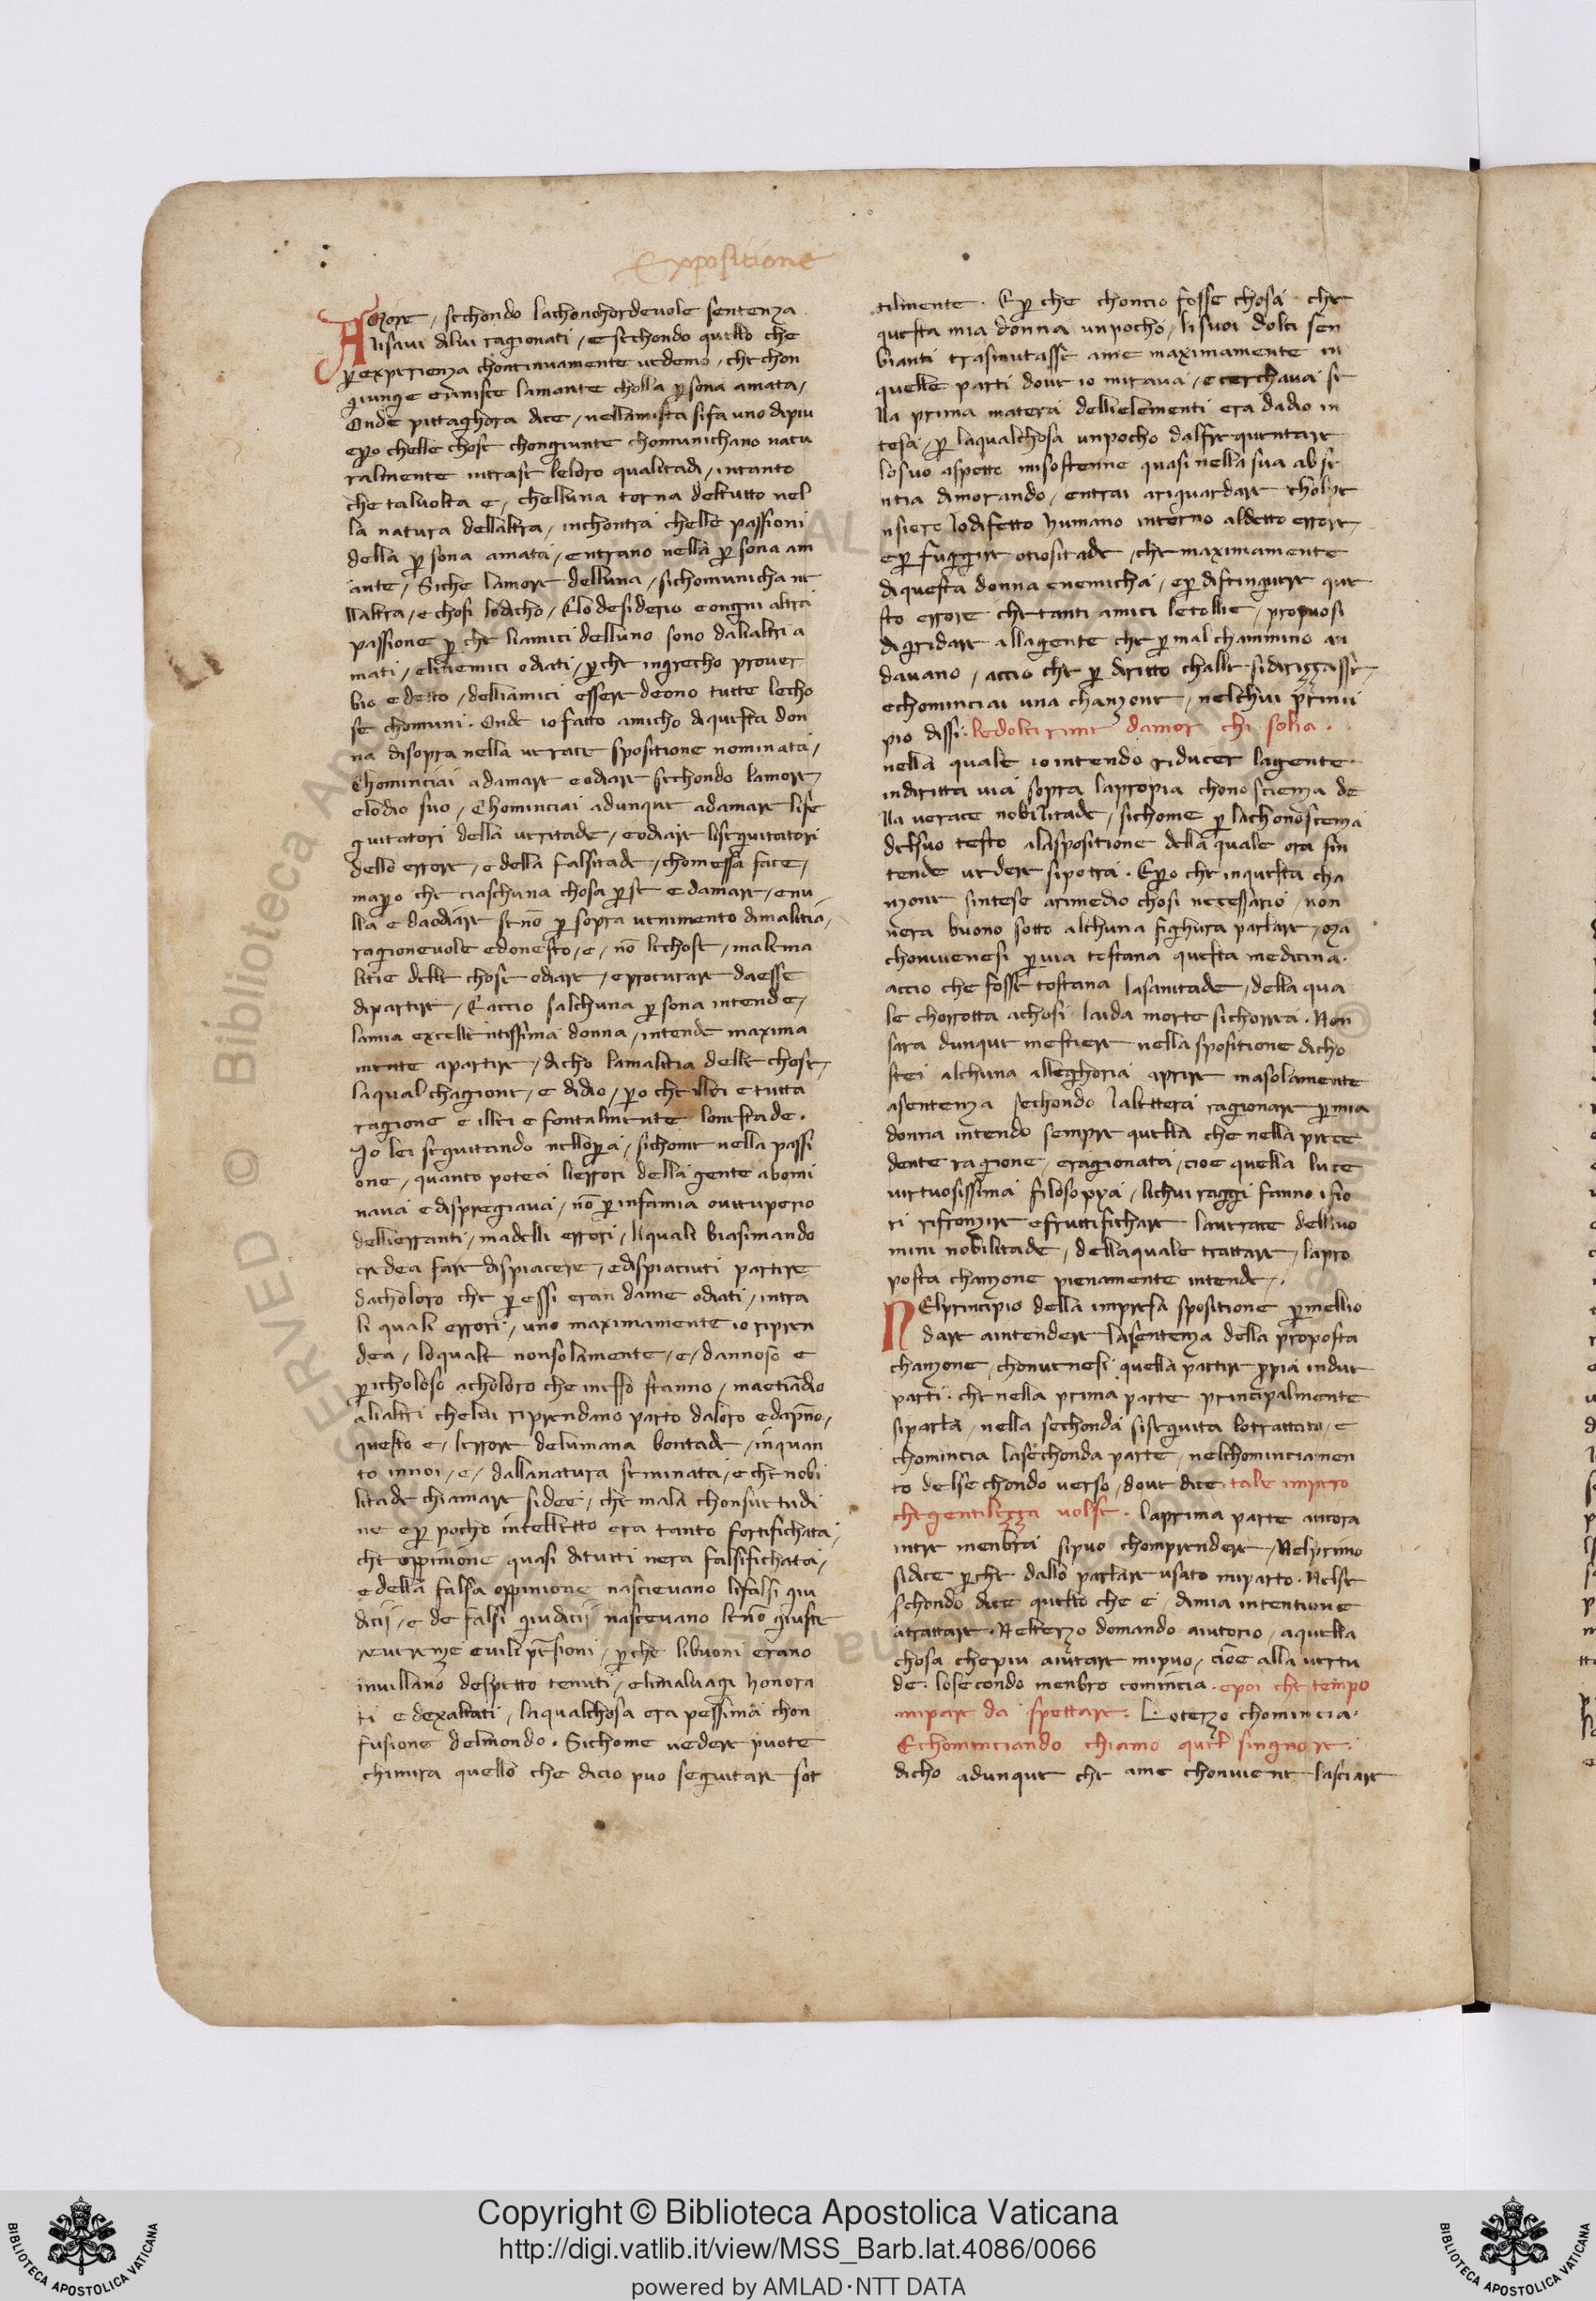 Expositione
AMore / sechondo lachonchordevole sentenza
lisavi dilui ragionati / e sechondo quello che
ꝑ experienza chontinuamente vedemo / che chon
giunge eunisce lamante cholla ꝑsona amata /
Onde pittaghora dice / nellamista sifa uno dipiu
eꝑo chelle chose chongiunte chomunichano natu
ralmente intrase leloro qualitadi / intanto
che talvolta e / chelluna torna deltutto nel
la natura dellaltra / inchontra chelle passioni
della ꝑsona amata / entrano nella ꝑsona am
ante / Siche lamore delluna / sichomunicha ne
llaltra / e chosi lodicho / Elo desiderio e ongni altra
passione ꝑ che liamici delluno sono daliatri a
mati / elinemici odiati / ꝑche ingrecho prover
bio e detto / delliamici essere deono tutte lecho
se chomuni . Onde io fatto amicho diquesta don
na disopra nella verace spositione nominata /
Chominciai adamare eodiare sechondo lamore /
elodio suo / Chominciai adunque adamare lise
guitatori della veritade / eodiare liseguitatori
dello errore / e della falsitade / chomessa face /
maꝑo che ciaschuna chosa ꝑse e damare / enu
lla e daodiare seno ꝑ sopra venimento dimalitia /
ragionevole edonesto / e / nō lechose / malema
litie delle chose odiare / eprocurare daesse
dipartire / Eaccio salchuna ꝑsona intende /
lamia excellentissima donna / intende maxima
mente apartire / dicho lamalitia delle chose /
laqual chagione / e didio / ꝑo che illei e tutta
ragione e illei e fontalmente lonestade .
Io lei seguitando nellopera / sichome nella passi
one / quanto potea lierrori della gente abomi
nava e dispregiava / nō ꝑ infamia ovituperio
dellierranti / madelli errori / liquali biasimando
credea fare dispiacere / edispiaciuti partire
dacholoro che ꝑ essi eran dame odiati / intra
li quali errori / uno maximamente io ripren
dea / loquale nonsolamente / e / dannoso e
ꝑicholoso acholoro che inesso stanno / maetiādio
aliatri chelui riprendano parto daloro edapno /
questo e / lerrore delumana bontade / inquan
to innoi / e / dallanatura seminata / e che nobi
litade chiamare sidee / che mala chonsuetudi
ne eꝑ pocho intelletto era tanto fortifichata /
che oppinione quasi ditutti nera falsifichata /
e della falsa oppinione nascievano lifalsi giu
dicij / e de falsi giudicij nascevano lenō giuste
reverenze evilip̄sioni / ꝑche libuoni erano
invillano despetto tenuti / elimalvagi honora
ti e dexaltati / laqualchosa era pessima chon
fusione delmondo . Sichome vedere puote
chimira quello che dicio puo seguitare sot
tilmente . Eꝑ che choncio fosse chosa che
questa mia donna unpocho / lisuoi dolci sen
bianti trasmutasse ame maximamente in
quelle parti dove io mirava / e cerchava se
lla prima matera dellielementi era dadio in
tesa / ꝑ laqualchosa unpocho dalfrequentare
losuo aspetto misostenne quasi nella sua abse
ntia dimorando / entrai ariguardare cholpe
nsiero lodifetto humano intorno aldetto errore /
eꝑ fuggire otiositade / che maximamente
diquesta donna enemicha / eꝑ distinguere que
sto errore chetanti amici letollie / propuosi
di gridare allagente che ꝑ mal chammino an
davano / accio che ꝑ diritto challe sidirizzasse /
echominciai una chanzone / nelchui princi
pio dissi . ledolci rime damor chi solia .
nella quale io intendo riducer lagente
indiritta via sopra lapropia chonoscienza de
lla verace nobilitade / sichome ꝑ lachonoscenza
delsuo testo alaspositione della quale ora sin
tende vedere sipotra . Eꝑo che inquesta cha
nzone sintese arimedio chosi necessario / non
nera buono sotto alchuna fighura parlare / ma
chonvenesi ꝑ via tostana questa medicina .
accio che fosse tostana lasanitade / della qua
le chorrotta achosi laida morte sichorrea . Non
sara dunque mestiere nella spositione dicho
stei alchuna alleghoria aprire masolamente
asentenza sechondo laletttera ragionare ꝑ mia
donna intendo sempre quella che nella prece
dente ragione / eragionata / cioe quella luce
virtuosissima filosoppya / lichui raggi fanno ifio
ri rifronzire efruttifichare laverace delluo
mini nobilitade / dellaquale trattare / lapro
posta chanzone pienamente intende / .
NElprincipio della impresa spositione ꝑ mellio
dare aintendere lasentenza della proposta
chanzone / chonvenesi quella partire ꝓpia indue
parti . che nella prima parte principalmente
siparla / nella sechonda siseguita lotrattato / e
chomincia lasechonda parte / nelchominciamen
to delsechondo verso / dove dice . tale impero
chegentilezza volse . laprima parte ancora
intre menbra sipuo chomprendere / Nelprimo
sidice ꝑche dallo parlare usato miparto . Nelse
schondo dice quello che e / dimia intentione
atrattare . Nelterzo domando aiutorio / aquella
chosa chepiu aiutare mipuo / cioe alla vertu
de . losecondo menbro comincia . epoi che tempo
mipar da spettare . Loterzo chomincia .
Echominciando chiamo quel singnore .
dicho adunque che ame chonviene lasciare
Copyright © Biblioteca Apostolica Vaticana
http://digi.vatlib.it/view/MSS_Barb.lat.4086/0066
powered by AMLAD·NTT DATA